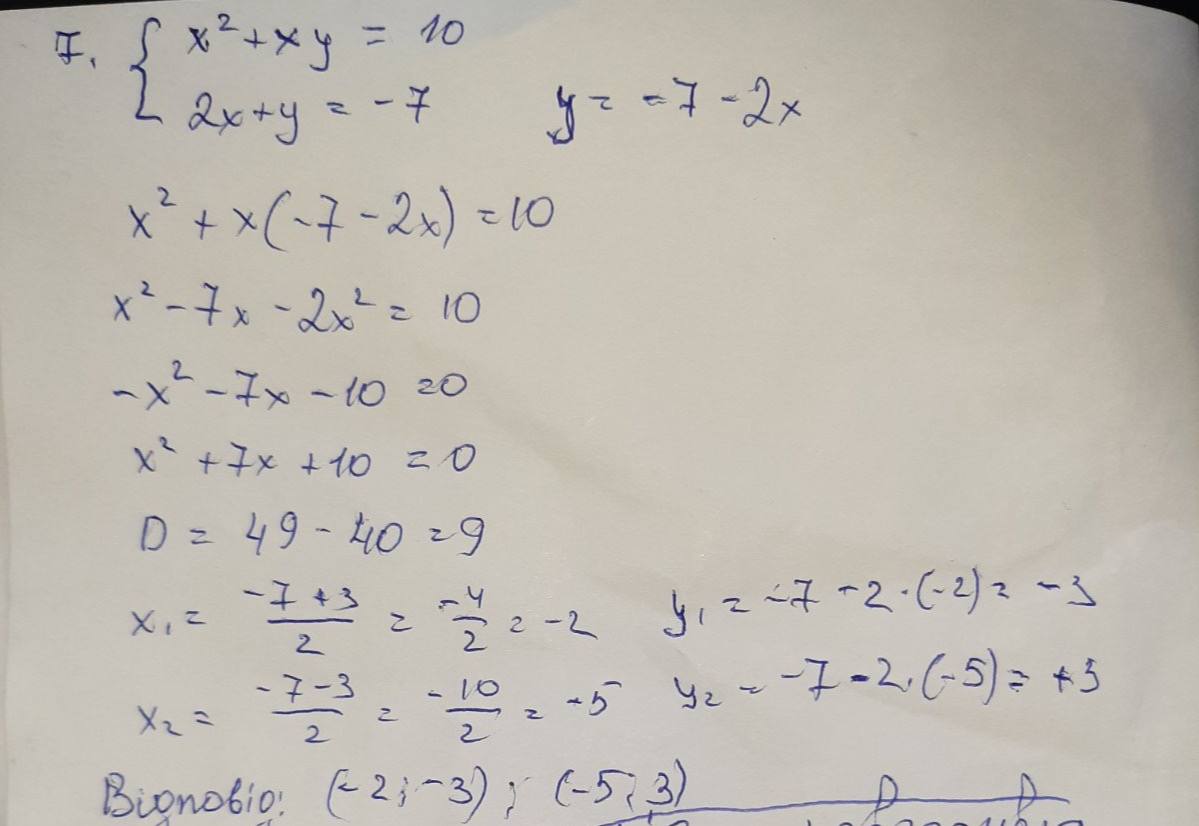 7. { x² + xy = 10
2x + y = -7     y = -7 - 2x
x² + x(-7 - 2x) = 10
x² - 7x - 2x² = 10
-x² - 7x - 10 = 0
x² + 7x + 10 = 0
D = 49 - 40 = 9
x₁ = (-7 + 3)/2 = -4/2 = -2     y₁ = -7 - 2 · (-2) = -3
x₂ = (-7 - 3)/2 = -10/2 = -5     y₂ = -7 - 2 · (-5) = +3
Відповідь: (-2; -3); (-5; 3)